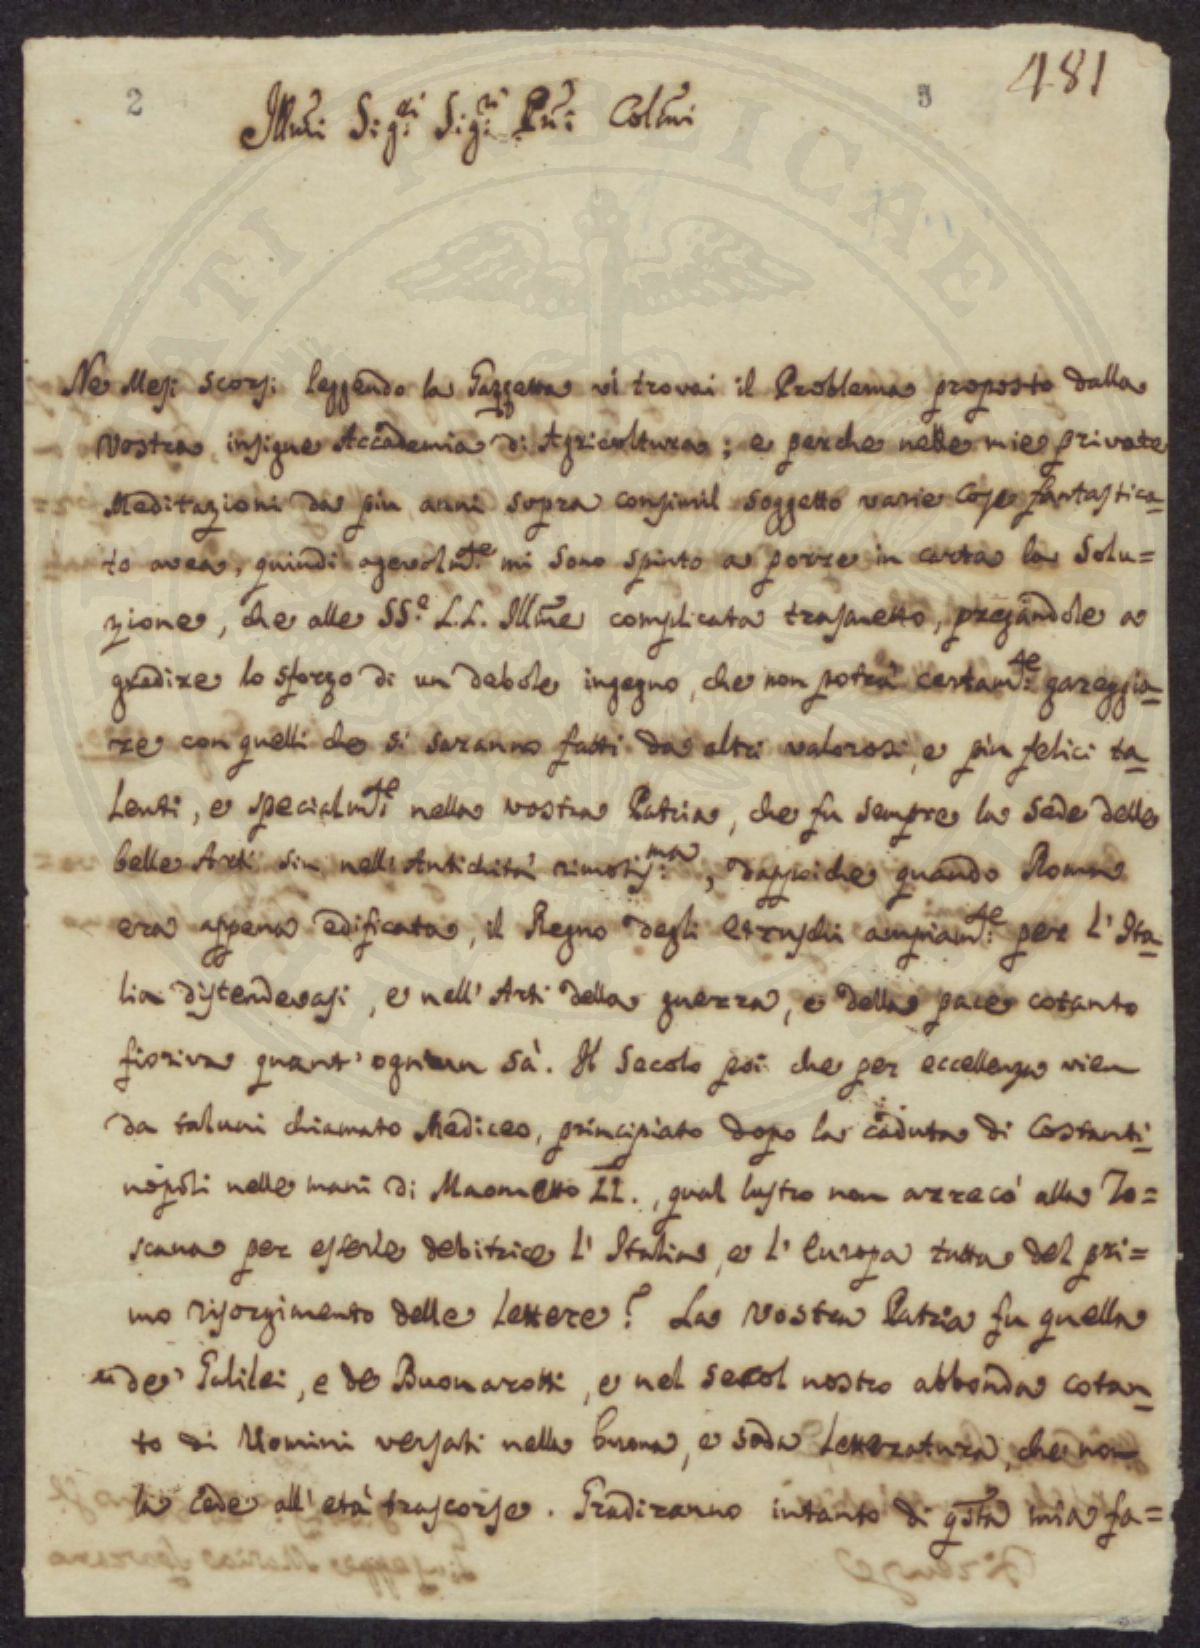 481
2 5
Illmi Sigri Sigri Pni Colmi
Ne Mesi scorsi leggendo la Gazzetta vi trovai il Problema proposto dalla
vostra insigne Accademia di Agricoltura; e perche nelle mie private
Meditazioni da più anni sopra consimil soggetto varie cose fantastica-
to avea, quindi agevolmte mi sono spinto a porre in carta la Solu=
zione, che alle SSe. LL. Illme complicata trasmetto, pregandole a
gradire lo sforzo di un debole ingegno, che non potrà certamte gareggia-
re con quelli che si saranno fatti da altri valorosi, e più felici ta-
lenti, e specialmte nella vostra Patria, che fu sempre la Sede delle
belle Arti sin nell' Antichità rimotisma, dappoiche quando Roma
era appena edificata, il Regno degli etruschi ampiamte per l' Ita-
lia distendevasi, e nell' Arti della guerra, e della pace cotanto
fioriva quant' ognun sà. Il Secolo poi che per eccellenza vien
da taluni chiamato Mediceo, principiato dopo la caduta di Costanti-
nopoli nelle mani di Maometto II., qual lustro non arrecò alla To=
scana per esserle debitrice l' Italia, e l' Europa tutta del pri=
mo risorgimento delle Lettere? La Vostra Patria fu quella
de' Galilei, e de Buonarotti, e nel secol nostro abbonda cotan-
to di Uomini versati nella buona, e soda Letteratura, che non
la cede all' età trascorse. Gradiranno intanto di qsta mia fa=